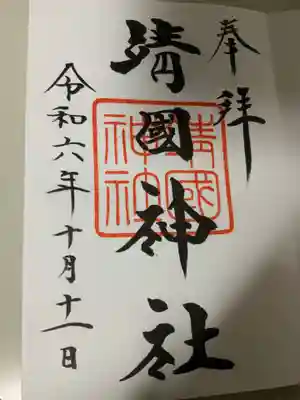 奉拝
靖國神社
靖國
神社
令和六年十月十一日